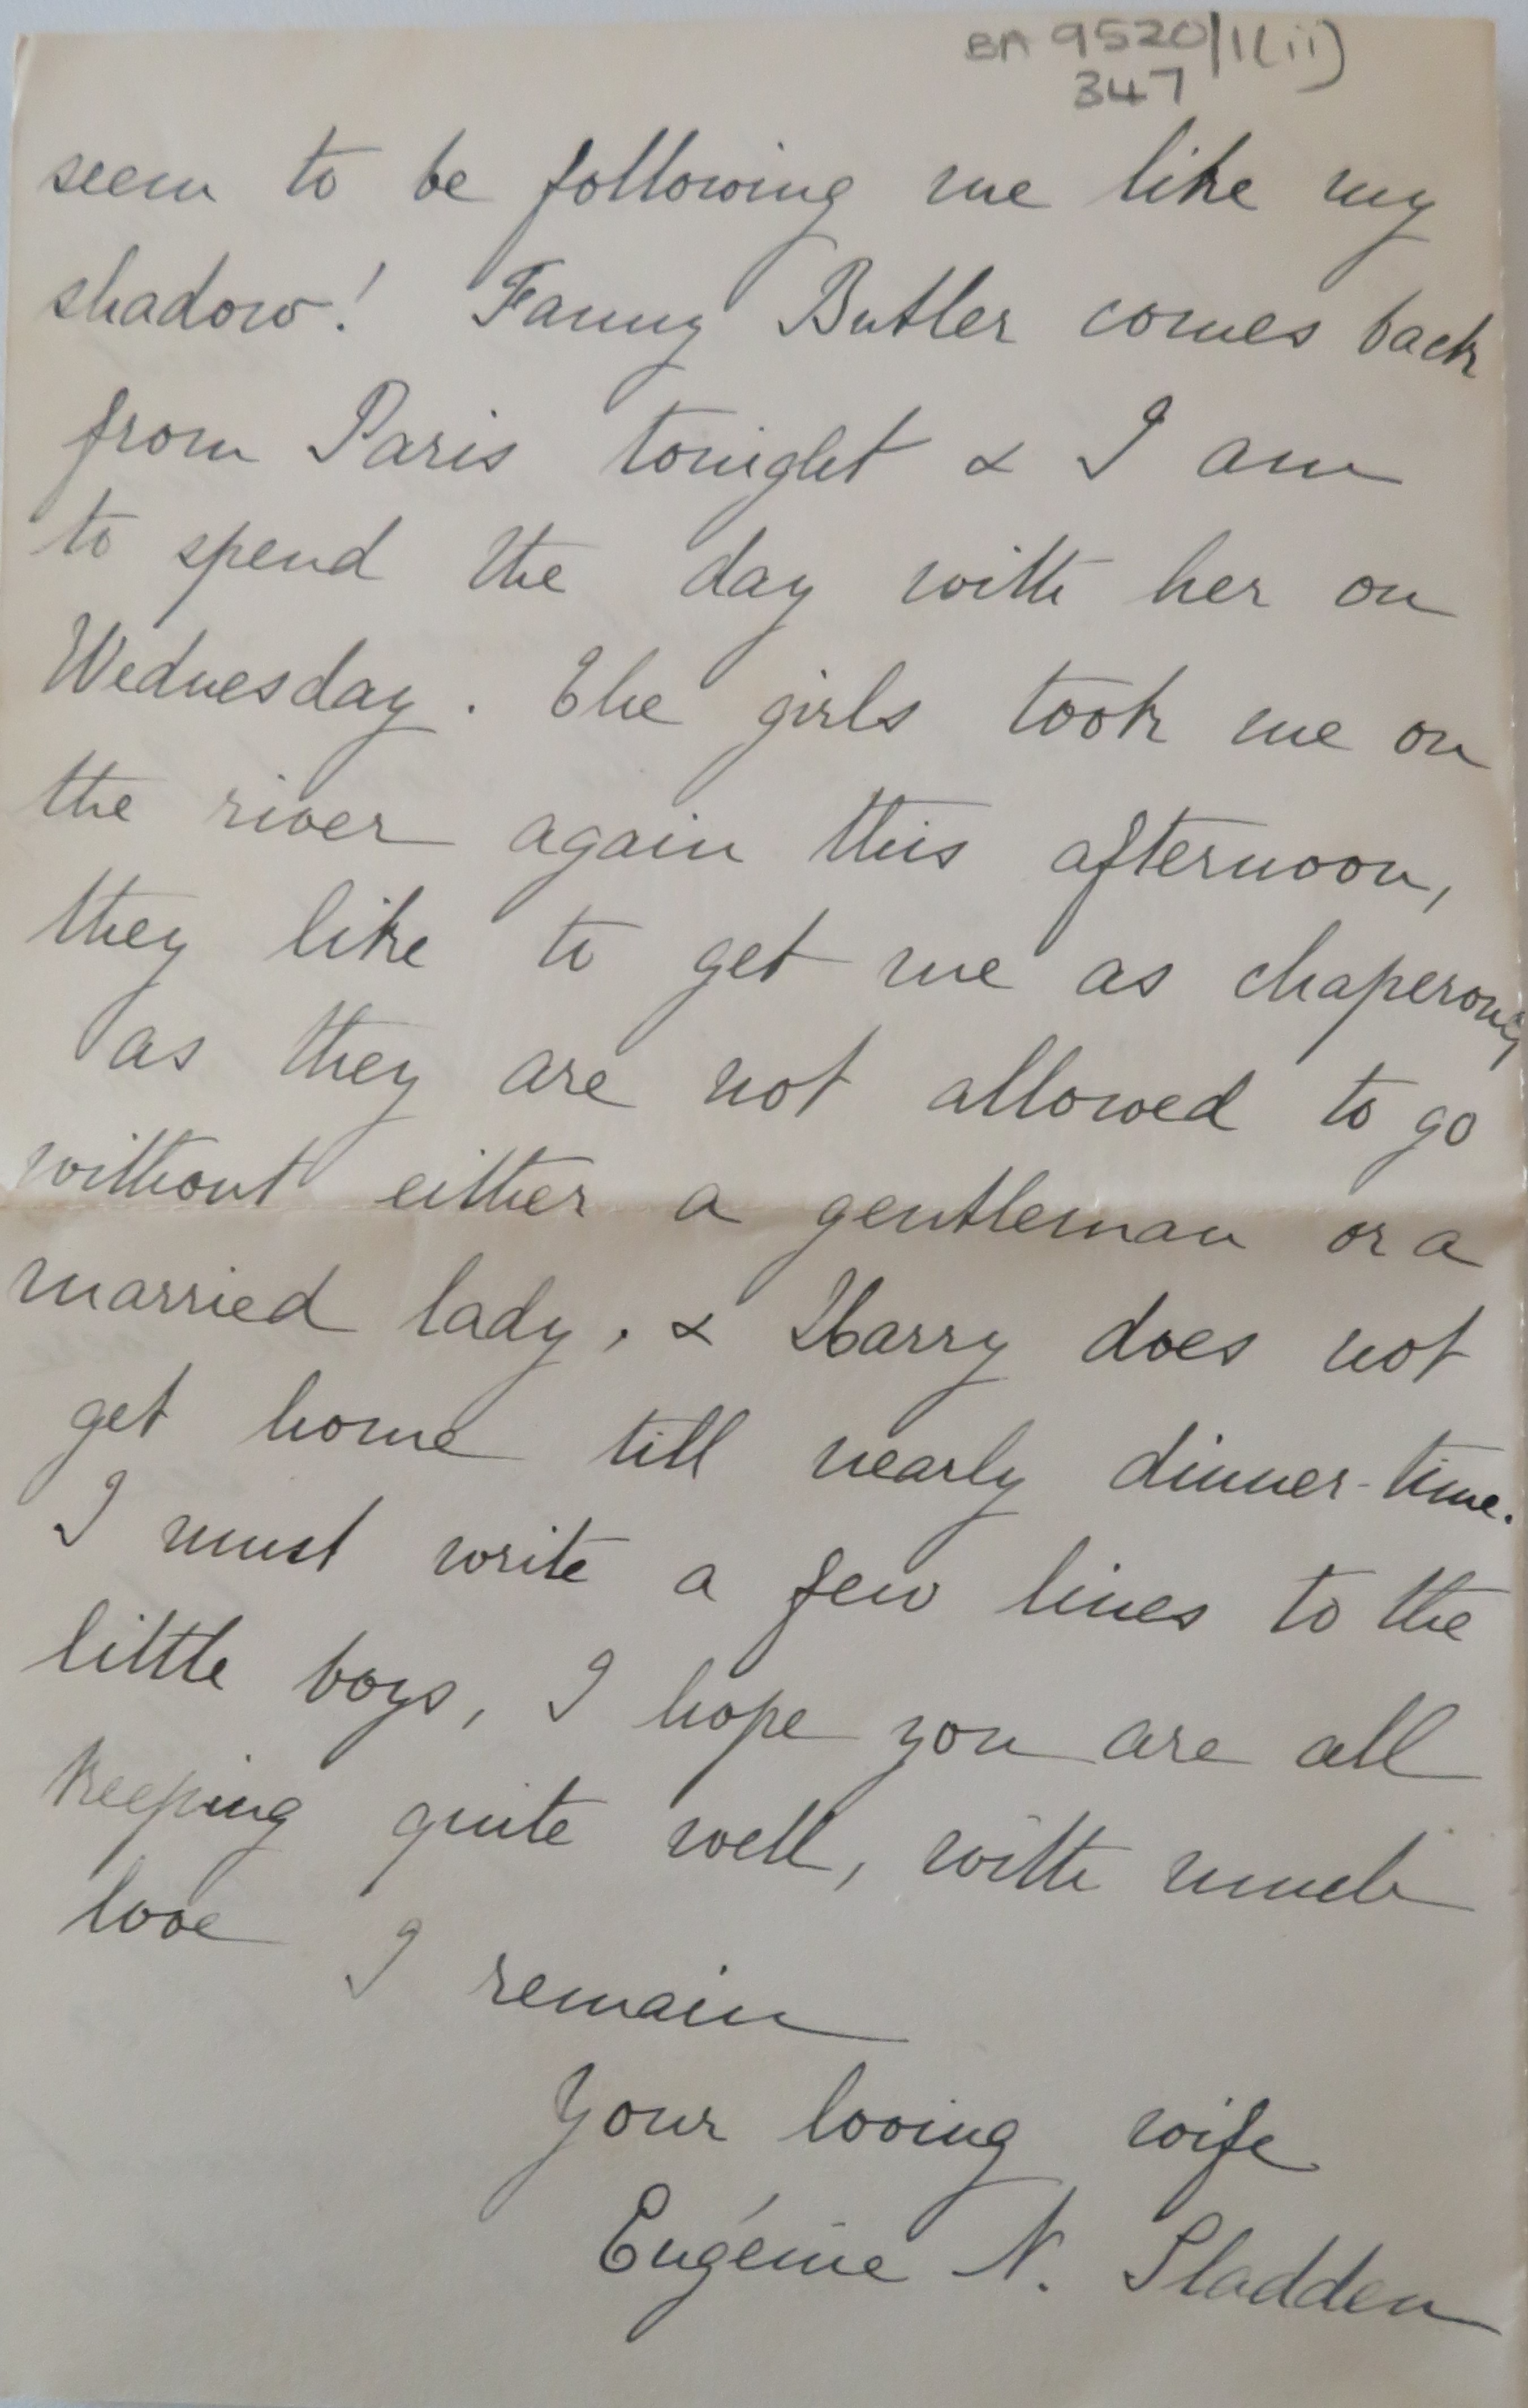 BA 9520/1(ii)
347
seem to be following me like my
shadow! Fanny Butler comes back
from Paris tonight & I am
to spend the day with her on
Wednesday. The girls took me on
the river again this afternoon,
they like to get me as chaperone,
as they are not allowed to go
without either a gentleman or a
married lady, & Harry does not
get home till nearly dinner-time.
I must write a few lines to the
little boys, I hope you are all
keeping quite well, with much
love I remain
Your loving wife
Eugénie N. Sladden